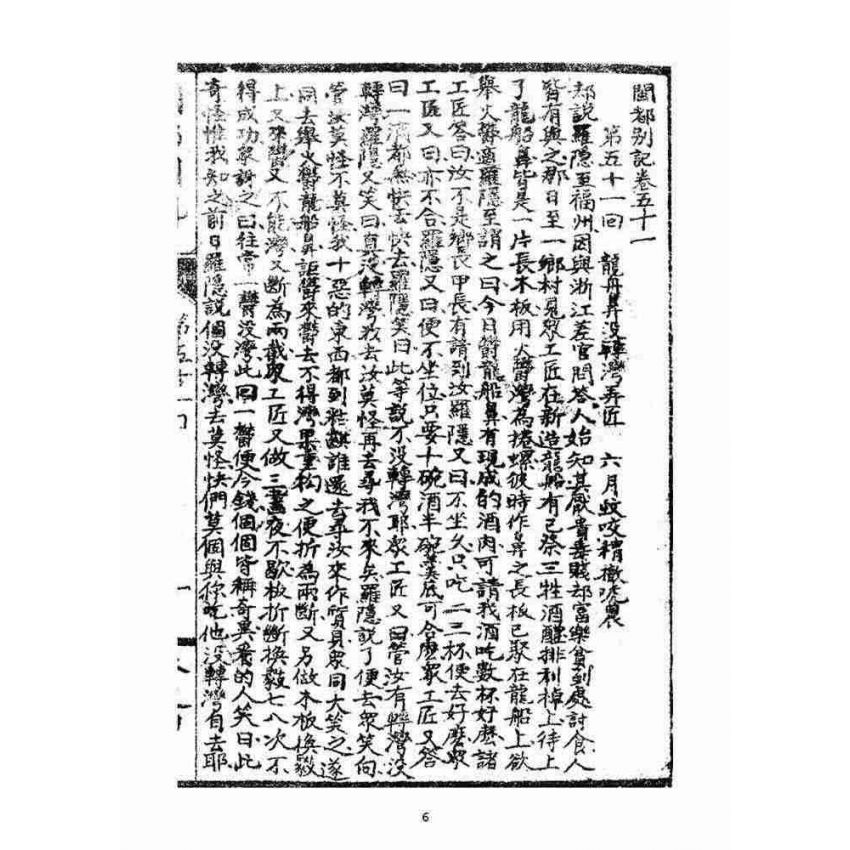 閩都别記卷五十一
第五十一回　龍舟鼻没轉灣弄匠　六月蚊咬精徹
却說羅隱至福州因與浙江差官問答人始知其厭貴毒賤却富樂貧到處討食人
皆有與之那日至一鄉村見眾工匠在新造龍船有已祭三牲酒醴排利棹上待上
了龍船鼻皆是一片長木板用火欝灣為捲螺彼時作鼻之長板已聚在龍船上欲
舉火欝適羅隱至謂之曰今日欝龍船鼻有現成的酒肉可請我酒吃數杯好麽諸
工匠答曰汝不是鄉長甲長有請到汝羅隱又曰不坐久只吃二三杯便去好麽眾
工匠又曰亦不合羅隱又曰便不坐位只要十碗酒半碗羹底可合麽眾工匠又答
曰一滴都無快去快去羅隱笑曰此等說不没轉灣耶眾工匠又曰管汝有轉灣没
轉灣羅隱又笑曰真没轉灣我去汝莫怪再去尋我不來矣羅隱說了便去眾笑向
管汝莫怪不莫怪我十惡的東西都到誰還去尋汝來作質貝眾同大笑之遂
同去舉火欝龍船鼻詎欝來欝去不得灣果重构之便折為兩斷又另做木板換
上又來欝又不能灣又斷為兩截眾工匠又做三晝夜不歇板折斷換七八次不
得成功眾訝之曰往常一欝没灣此曰一欝便今錢個個皆稱奇異看的人笑曰此
奇怪惟我知之前日羅隱說個没轉灣去莫怪快們莫個與你吃他没轉灣自去耶
6